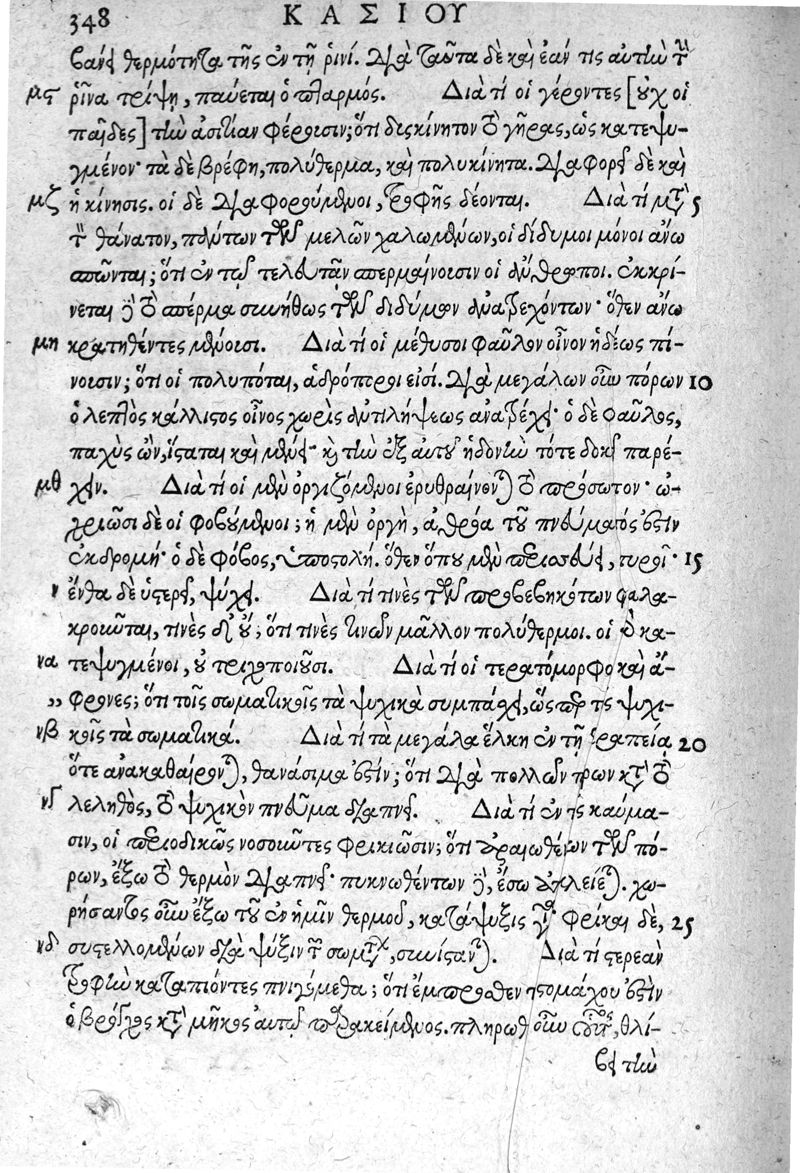 348 ΚΑΣΙΟΥ
βαίνει θερμότητα τῆς ἐν τῇ ῥινί. διὰ ταῦτα δὲ καὶ ἐάν τις αὐτὴν τὴν
μϛ ῥῖνα τρίψῃ, παύεται ὁ πταρμός. Διὰ τί οἱ γέροντες [οὐχ οἱ
παῖδες] τὴν ἀσιτίαν φέρουσιν; ὅτι δυσκίνητον τὸ γῆρας, ὡς κατεψυ-
γμένον· τὰ δὲ βρέφη, πολύθερμα, καὶ πολυκίνητα. διαφορεῖ δὲ καὶ
μζ ἡ κίνησις. οἱ δὲ διαφορούμενοι, τροφῆς δέονται. Διὰ τί μετὰ 5
τὸν θάνατον, πάντων τῶν μελῶν χαλωμένων, οἱ δίδυμοι μόνοι ἄνω
σπῶνται; ὅτι ἐν τῷ τελευτᾶν σπερμαίνουσιν οἱ ἄνθρωποι. ἐκκρί-
νεται γὰρ τὸ σπέρμα συνήθως τῶν διδύμων ἀνατρεχόντων· ὅθεν ἄνω
μη κρατηθέντες μένουσι. Διὰ τί οἱ μέθυσοι φαῦλον οἶνον ἡδέως πί-
νουσιν; ὅτι οἱ πολυπόται, ἁδρόποροι εἰσί. διὰ μεγάλων οὖν πόρων 10
ὁ λεπτὸς κάλλιστος οἶνος χωρὶς ἀντιλήψεως ἀνατρέχει· ὁ δὲ φαῦλος,
παχὺς ὢν, ἵσταται καὶ μένει· καὶ τὴν ἐξ αὐτοῦ ἡδονὴν τότε δοκεῖ παρέ-
μθ χειν. Διὰ τί οἱ μὲν ὀργιζόμενοι ἐρυθραίνονται τὸ πρόσωπον· ὠ-
χριῶσι δὲ οἱ φοβούμενοι; ἡ μὲν ὀργὴ, ἀθρόα τοῦ πνεύματός ἐστιν
ἐκδρομή· ὁ δὲ φόβος, ὑποστολή. ὅθεν ὅπου μὲν περισσεύει, πυροῖ· 15
ν ἔνθα δὲ ὑστερεῖ, ψύχει. Διὰ τί τινὲς τῶν προβεβηκότων φαλα-
κροῦνται, τινὲς δ' οὔ; ὅτι τινὲς τινῶν μᾶλλον πολύθερμοι. οἱ δὲ κα-
να τεψυγμένοι, οὐ τριχοποιοῦσι. Διὰ τί οἱ τερατόμορφοι καὶ ἄ-
„ φρονες; ὅτι τοῖς σωματικοῖς τὰ ψυχικὰ συμπάσχει, ὥσπερ τοῖς ψυχι-
νβ κοῖς τὰ σωματικά. Διὰ τί τὰ μεγάλα ἕλκη ἐν τῇ θεραπείᾳ 20
ὅτε ἀνακαθαίρονται, θανάσιμά ἐστιν; ὅτι διὰ πολλῶν πόρων κατὰ τὸ
νγ λεληθὸς, τὸ ψυχικὸν πνεῦμα διαπνεῖ. Διὰ τί ἐν τοῖς καύμα-
σιν, οἱ περιοδικῶς νοσοῦντες φρικιῶσιν; ὅτι ἀραιωθέντων τῶν πό-
ρων, ἔξω τὸ θερμὸν διαπνεῖ· πυκνωθέντων γὰρ, ἔσω ἀποκλείεται. χω-
ρήσαντος οὖν ἔξω τοῦ ἐν ἡμῖν θερμοῦ, κατάψυξις γίνεται· φρῖκαι δὲ, 25
νδ συστελλομένων διὰ ψύξιν τῶν σωμάτων, συνίστανται. Διὰ τί στερεὰν
τροφὴν καταπιόντες πνιγόμεθα; ὅτι ἔμπροσθεν τοῦ στομάχου ἐστὶν
ὁ βρόγχος κατὰ μῆκος αὐτῷ παρακείμενος. πληρωθεὶς οὖν οὗτος, θλί-
βει τὴν